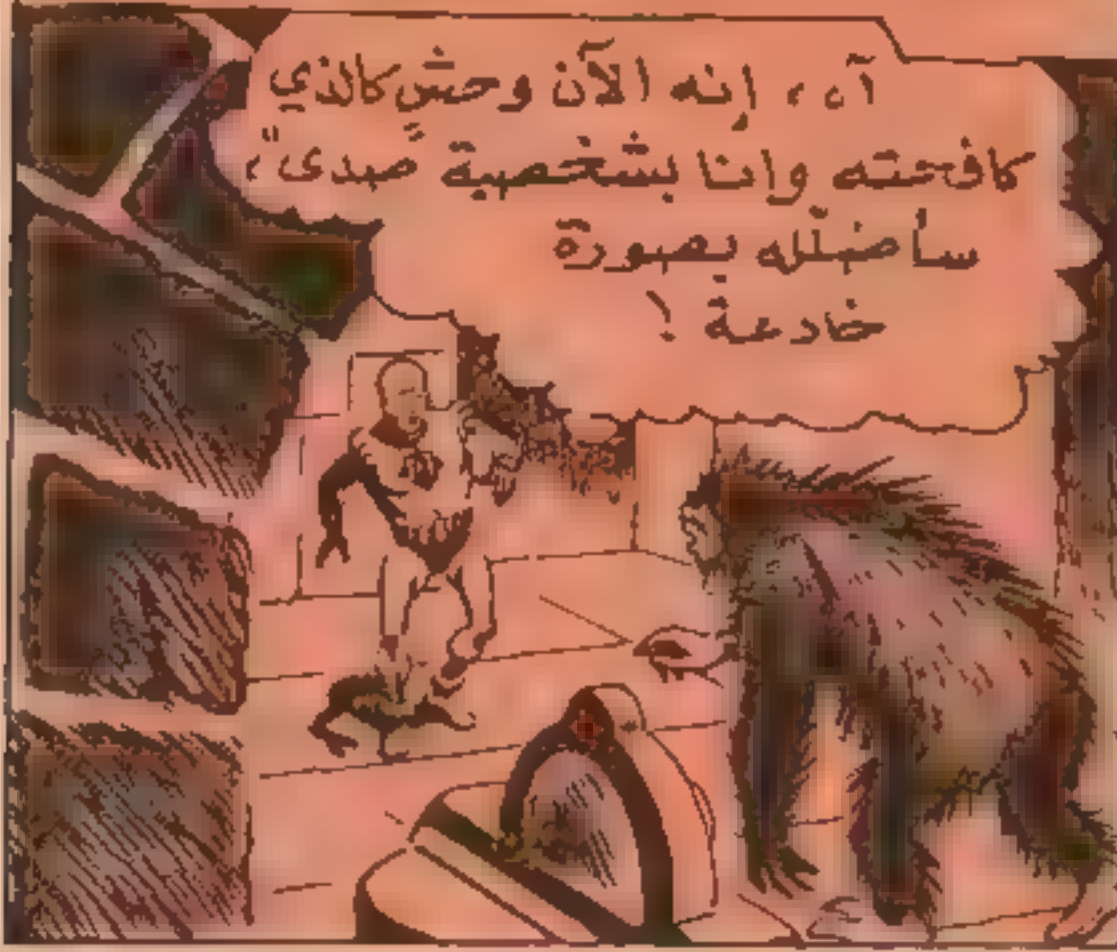 آه، إنه الآن وحشٍ كالذي
كافحته وانا بشخصية "صدى"،
سأضلّله بصورة
خادعة !